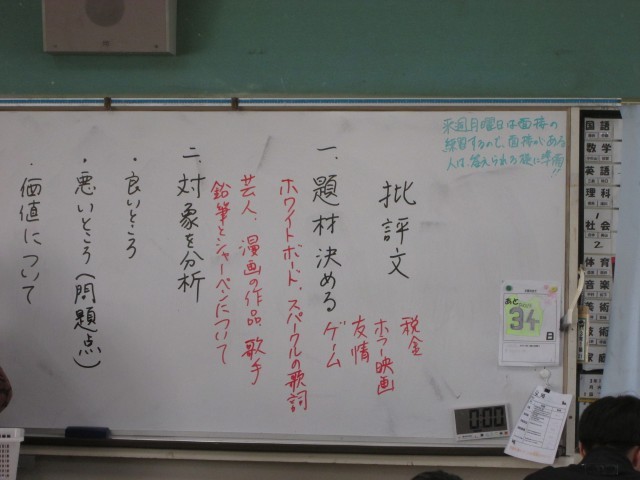 来週月曜日は面接の
練習するので、面接がある
人は答えられる様に準備!!
批評文
一、題材決める
税金
ホラー映画
友情
ゲーム
ホワイトボード、スパークルの歌詞
芸人、漫画の作品、歌手
鉛筆とシャーペンについて
二、対象を分析
・良いところ
・悪いところ(問題点)
・価値について
国語
数学
英語
理科
1
社会
2
体育
音楽
美術
家庭
あと
34
日
0:00